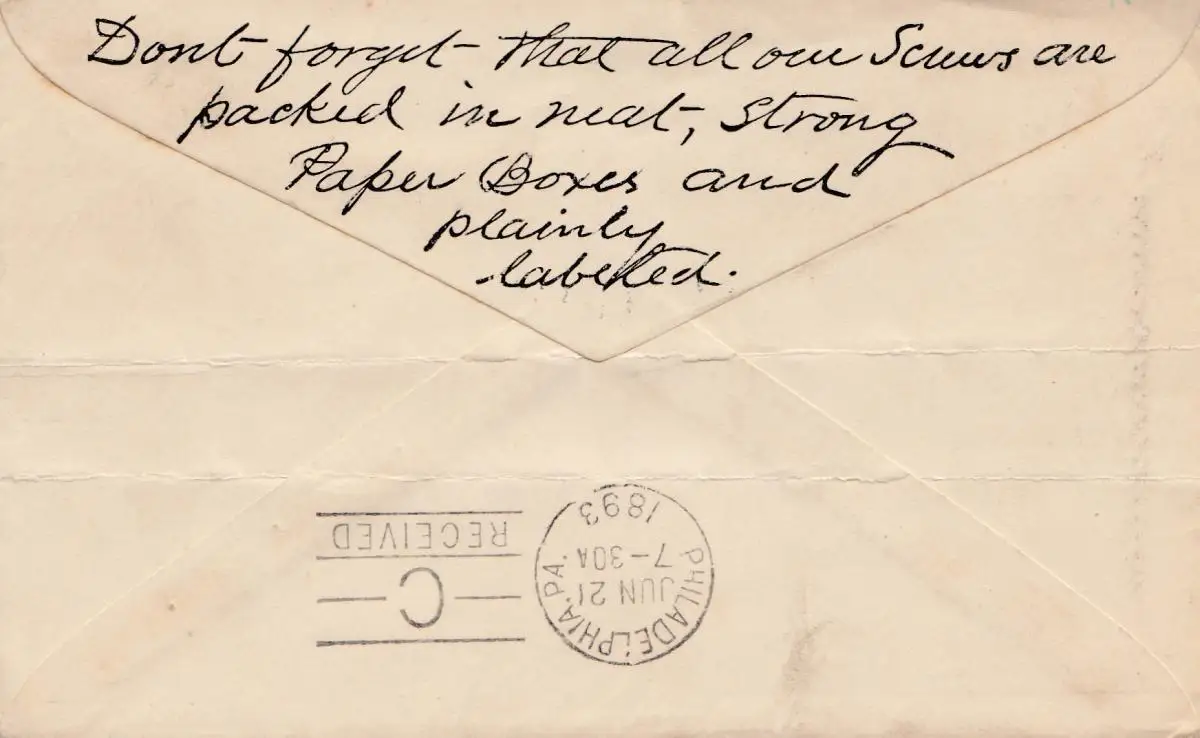 Dont forget that all our Screws are
packed in neat, strong
Paper Boxes and
plainly
labeled.
PHILADELPHIA, PA.
JUN 21
7-30A
1893
RECEIVED
C